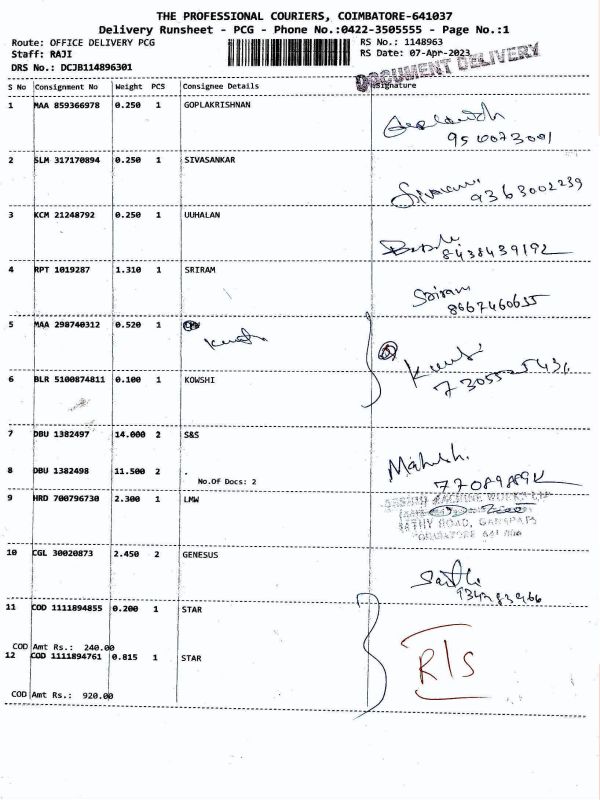 THE PROFESSIONAL COURIERS, COIMBATORE-641037
Delivery Runsheet - PCG - Phone No.:0422-3505555 - Page No.:1
Route: OFFICE DELIVERY PCG
RS No.: 1148963
Staff: RAJI
RS Date: 07-Apr-2023
DRS No.: DCJB114896301
DOCUMENT DELIVERY
S No Consignment No Weight PCS Consignee Details Signature
1 MAA 859366978 0.250 1 GOPLAKRISHNAN
2 SLM 317170894 0.250 1 SIVASANKAR
9363002239
3 KCM 21248792 0.250 1 UUHALAN
8438439192
4 RPT 1019287 1.310 1 SRIRAM
Sriram
8667460655
5 MAA 298740312 0.520 1
6 BLR 5100874811 0.100 1 KOWSHI
7 DBU 1382497 14.000 2 S&S
Mahesh.
8 DBU 1382498 11.500 2 .
No.Of Docs: 2
9 HRD 700796730 2.300 1 LMW
SATHY ROAD, GANAPATHY
10 CGL 30020873 2.450 2 GENESUS
11 COD 1111894855 0.200 1 STAR
COD Amt Rs.: 240.00
12 COD 1111894761 0.815 1 STAR
R/S
COD Amt Rs.: 920.00